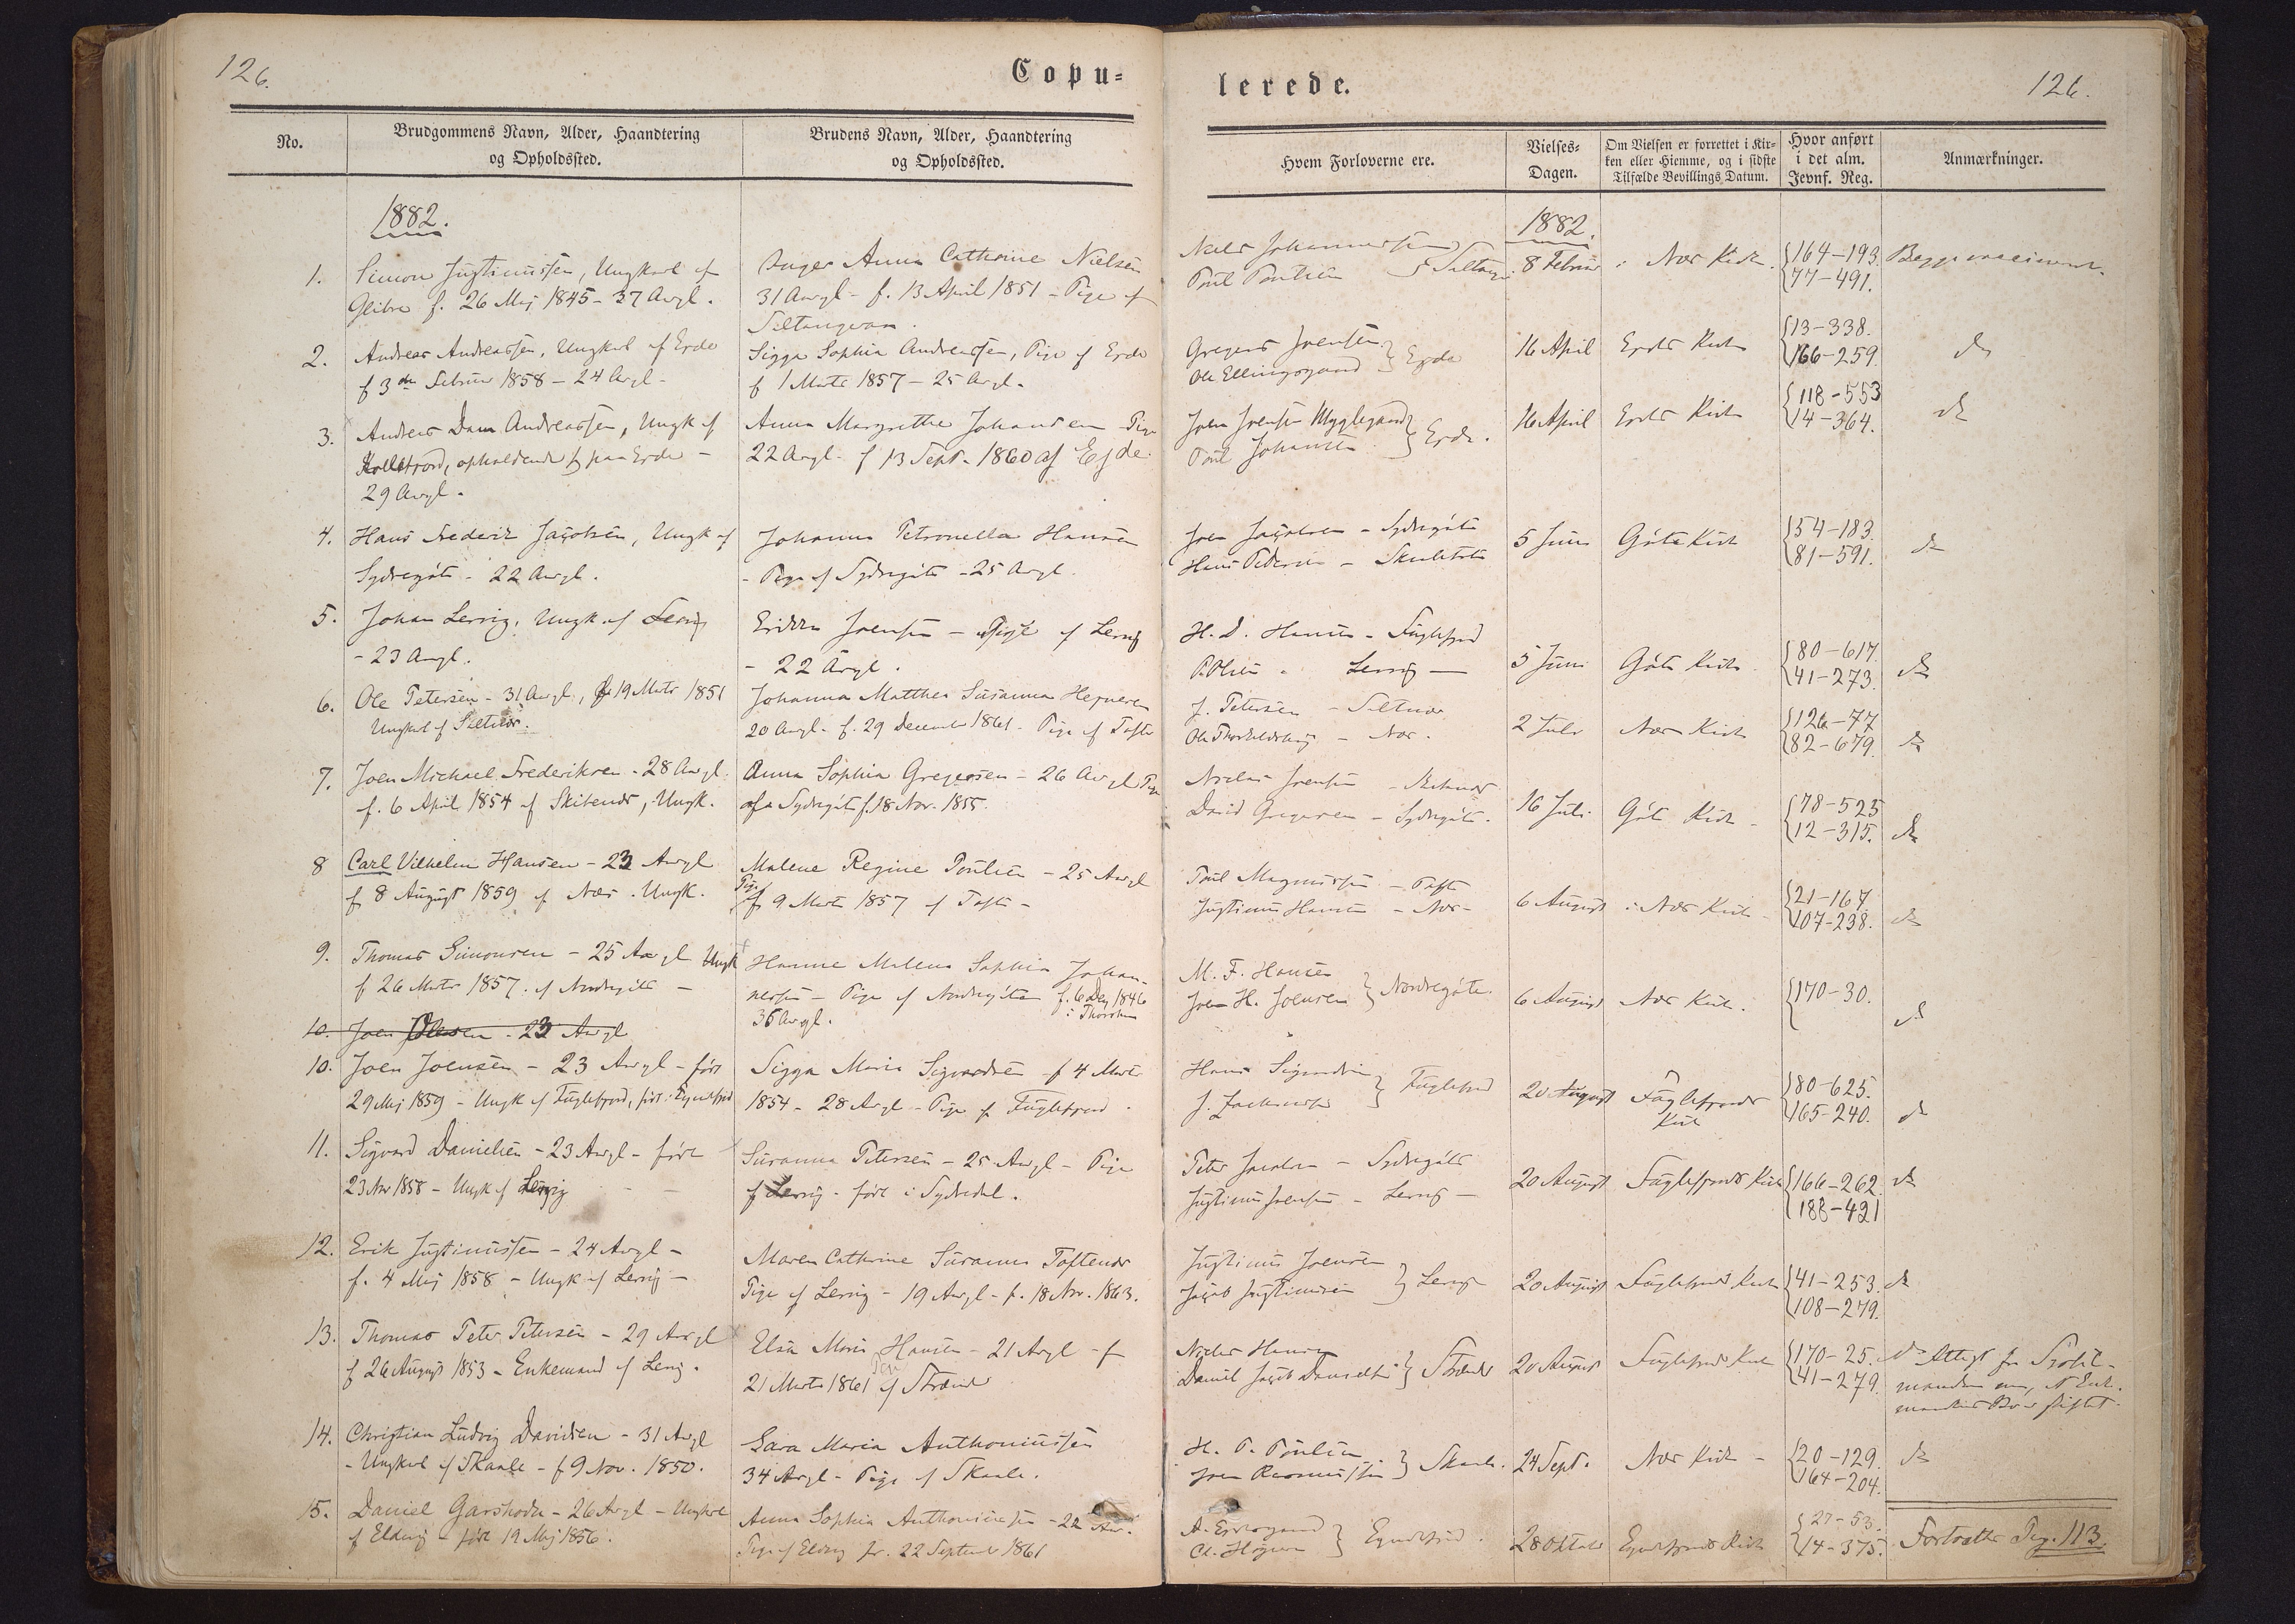 126.
Copu-
lerede.
126.
No.
Brudgommens Navn, Alder, Haandtering
og Opholdssted.
Brudens Navn, Alder, Haandtering
og Opholdssted.
Hvem Forloverne ere.
Vielses-
Dagen.
Om Vielsen er forrettet i Kir-
ken eller Hiemme, og i sidste
Tilfælde Bevillings Datum.
Hvor anført
i det alm.
Jevnf. Reg.
Anmærkninger.
1882.
1882.
1. Simon Justinussen, Ungkarl af
Glibre f. 26 Mej 1845 - 37 Argl.
Inger Anna Cathrine Nielsen
31 Aargl - f. 13 April 1851 - Pige af
Niels Johannessen
Poul Poulsen
8 Februar
i Næs Kirke.
164-193.
77-491.
Begge
2. Andreas Andreassen, Ungkarl af Ejde
f 3die Februar 1858 - 24 Argl.
Sigga Sophia Andreassen, Pige af Ejde
f 1 Marts 1857 - 25 Argl.
Gregers Joensen
Ole Ellingsgaard } Ejde
16 April
Ejde Kirke
13-338.
166-259.
do
3. Andreas Dam Andreassen, Ungk af
opholdende paa Ejde -
29 Argl.
Anna Margrethe Johansen Pige
22 Argl. f 13 Sept. 1860 af Ejde.
Joen Joensen Mygglegaard
Poul Johansen } Ejde.
16 April
Ejde Kirke
118-553
14-364.
do
4. Hans Frederik Jacobsen, Ungk af
Sydregöte - 22 Argl.
Johanna Petronella Hansen
- Pige af Sydregöte - 25 Argl
Joen Jacobsen - Sydregöte
Hans Pedersen -
5 Juni
Göte Kirke
54-183.
81-591.
do
5. Johan Lervig, Ungk af Lervig
- 23 Argl.
Erikka Joensen - Pige af Lervig
- 22 Argl.
H. D. Hansen - Fuglefjord
P. Olsen - Lervig -
5 Juni
Göte Kirke
80-617.
41-273.
do
6. Ole Petersen - 31 Argl., f 19 Marts 1851
Ungkarl af Seltnæs.
Johanna Matthea Susanna
20 Argl. f. 29 December 1861 - Pige af Tofte
J. Petersen - Seltnæs
- Næs.
2 Juli
Næs Kirke
126-77
82-679.
do
7. Joen Michael Frederiksen - 28 Argl.
f. 6 April 1854 af Skibenæs, Ungk.
Anna Sophia Gregersen - 26 Argl Pige
af Sydregöte f. 18 Nov. 1855.
Niclas Joensen -
David Gregersen - Sydregöte.
16 Juli
Göte Kirke -
78-525
12-315.
do
8 Carl Vilhelm Hansen - 23 Argl
f 8 August 1859 af Næs. Ungk.
Malene Regine Poulsen - 25 Argl
Pige
f 9 Marts 1857 af Tofte -
Poul Magnussen - Tofte
Justinus Hansen - Næs -
6 August
i Næs Kirke -
21-167.
107-238.
do
9. Thomas Simonsen - 25 Argl Ungk
f 26 Marts 1857. af Nordregöte -
Hanne Malena Sophia Johan-
nessen - Pige af Nordregöte f. 6 Dez 1846
36 Argl. i Thorshavn
M. F. Hansen
Joen H. Joensen } Nordregöte.
6 August
Næs Kirke.
170-30.
do
10. Joen Olesen - 23 Argl
10. Joen Joensen - 23 Argl - født
29 Mej 1859 - Ungk af Fuglefjord, født i Ejndefjord
Sigga Maria Sigvardsen - f 4 Marts
1854 - 28 Argl - Pige af Fuglefjord.
Hans Sigvardsen
J. Zachariasen } Fuglefjord
20 August
Fuglefjords
Kirke
80-625.
165-240.
do
11. Sigvard Danielsen - 23 Argl - født
23 Nov 1858 - Ungk af Lervig
Susanna Petersen - 25 Argl - Pige
af Lervig - født i Sydredal.
Peter Jacobsen - Sydregöte
Justinus Joensen - Lervig -
20 August
Fuglefjords Kirke
166-262.
188-421
do
12. Erik Justinussen - 24 Argl -
f. 4 Mej 1858 - Ungk af Lervig -
Maren Cathrine Susanna Toftenæs
Pige af Lervig - 19 Argl - f. 18 Nov. 1863.
Justinus Joensen
Jacob Justinussen } Lervig
20 August
Fuglefjords Kirke
41-253.
108-279.
do
13. Thomas Peter Petersen - 29 Argl
f 26 August 1853 - Enkemand af Lervig.
Elsa Maria Hansen - 21 Argl - f
21 Marts 1861 Pige af Strænder
Niclas Hansen
Daniel Jacob Danielsen } Strænder
20 August
Fuglefjords Kirke
170-25.
41-279.
do Attest fra
om, at Enke-
mandens Bo er skiftet.
14. Christian Ludvig Davidsen - 31 Argl
- Ungkarl af Skaale - f 9 Nov. 1850.
Sara Maria Anthoniussen
34 Argl - Pige af Skaale.
H. P. Poulsen
Joen Rasmussen } Skaale.
24 Sept.
Næs Kirke -
20-129.
164-204.
do
15. Daniel Garshodn - 26 Argl - Ungkarl
af Eldevig - født 19 Mej 1856.
Anna Sophia Anthoniussen - 22 Aar.
Pige af Eldevig f. 22 September 1861
Ejndefjord.
28 Oktober
Ejndefjords Kirke
27-53.
14-375.
Fortsættes Pag. 113.